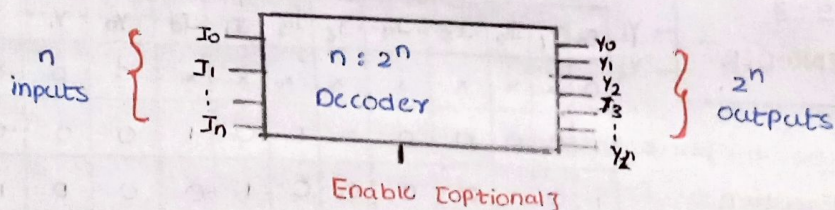 n
inputs
I0
I1
⋮
In
n : 2ⁿ
Decoder
Y0
Y1
Y2
Y3
⋮
Y2ⁿ
2ⁿ
outputs
Enable [optional]